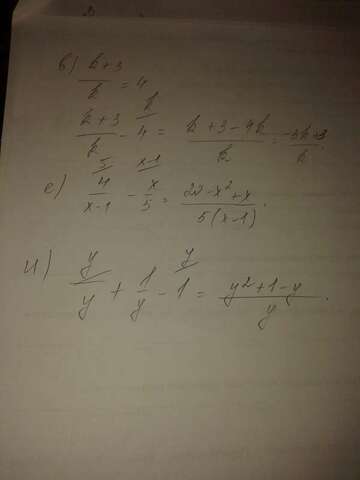 в) (b+3)/b = 4
(b+3)/b - 4 = (b+3-4b)/b = (-3b+3)/b.
е) 4/(x-1) - x/5 = (20-x²+x)/(5(x-1)).
и) y/y + 1/y - 1 = (y²+1-y)/y.